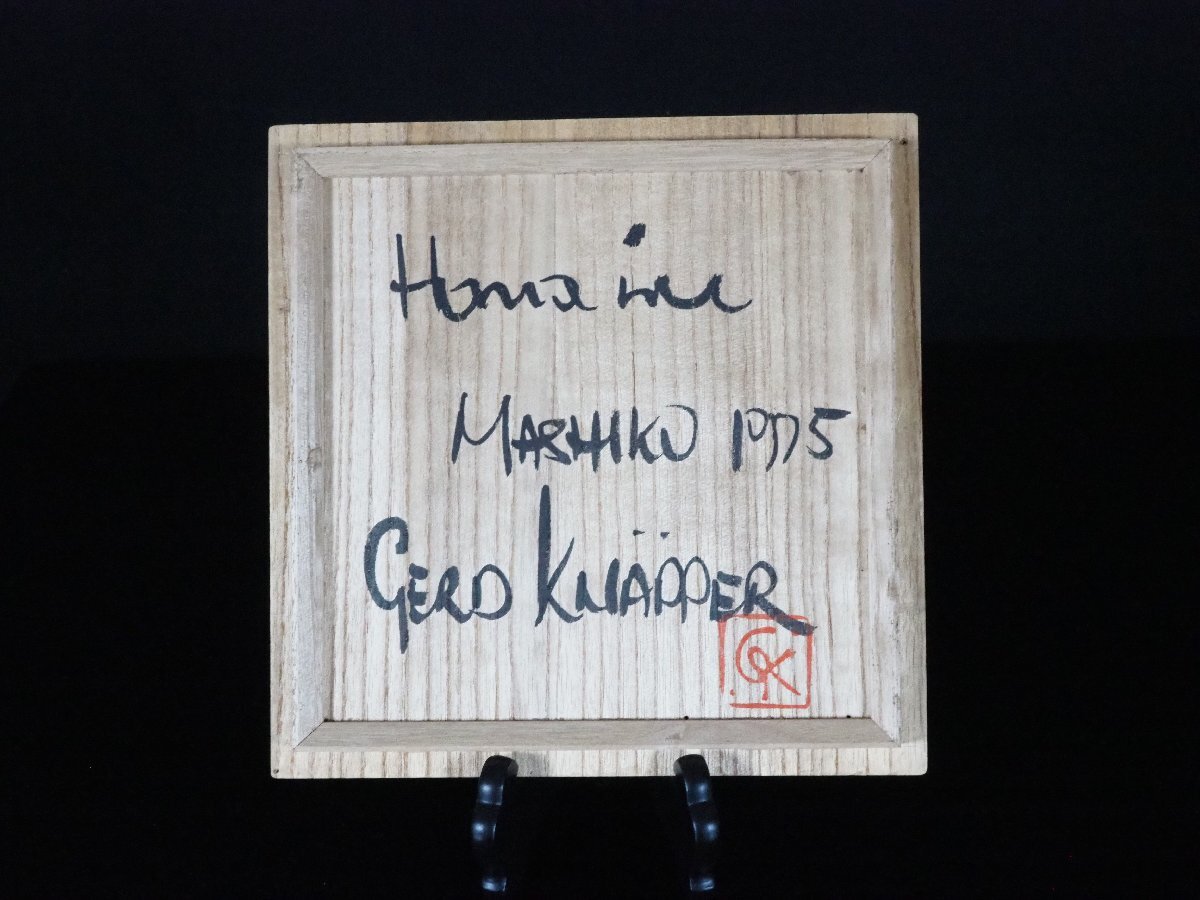 Hanaire
MASHIKO 1975
GERD KNÄPPER
GK